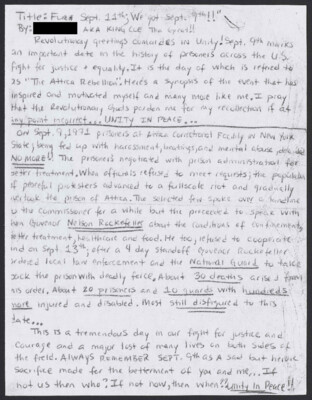 Title: Fuck Sept. 11th; We got Sept. 9th!!"
By: AKA KING CUE The Gyrus!!
Revolutionary Greetings Comrades in Unity! Sept. 9th marks
an important date in the history of prisoners across the U.S.
fight for justice & equality. It is the day of which is refered to
as "The Attica Rebellion". Here's a synopsis of the event that has
inspired and motivated myself and many more like me. I pray
that the Revolutionary Gods pardon me for my recollection if at
any point incorrect... UNITY IN PEACE...
On Sept. 9, 1971 prisoners at Attica Correctional Facility in New York
State, being fed up with harassment, beatings, and mental abuse
NO MORE!! The prisoners negotiated with prison administration for
better treatment. When officials refused to meet requests; the population
of peaceful protesters advanced to a fullscale riot and gradually
overtook the prison of Attica. The selected few spoke over a
to the Commissioner for a while but the proceeded to speak with
then Governor Nelson Rockefeller about the conditions of confinement,
better treatment, healthcare and food. He too, refused to cooperate
and on Sept. 13th after a 4 day standoff Governor Rockefeller
ordered local law enforcement and the National Guard to take
back the prison with deadly force. About 30 deaths arised from
his order. About 20 prisoners and 10 guards with hundreds
more injured and disabled. Most still disfigured to this
date...
This is a tremendous day in our fight for justice and
courage and a major lost of many lives on both sides of
the field. ALWAYS REMEMBER SEPT. 9th AS A sad but heroic
Sacrifice made for the betterment of you and me... If
not us then who? If not now, then when? Unity In Peace!!